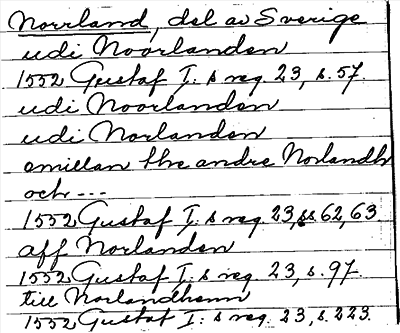 Norrland, del av Sverige
udi Noorlanden
1552 Gustaf I:s reg. 23, s. 57.
udi Noorlanden
udi Norlanden
emillan the andre Norlandh
och ---
1552 Gustaf I:s reg. 23, ss. 62, 63
aff Norlanden
1552 Gustaf I:s reg. 23, s. 97.
till Norlandhenn
1552 Gustaf I:s reg. 23, s. 223.